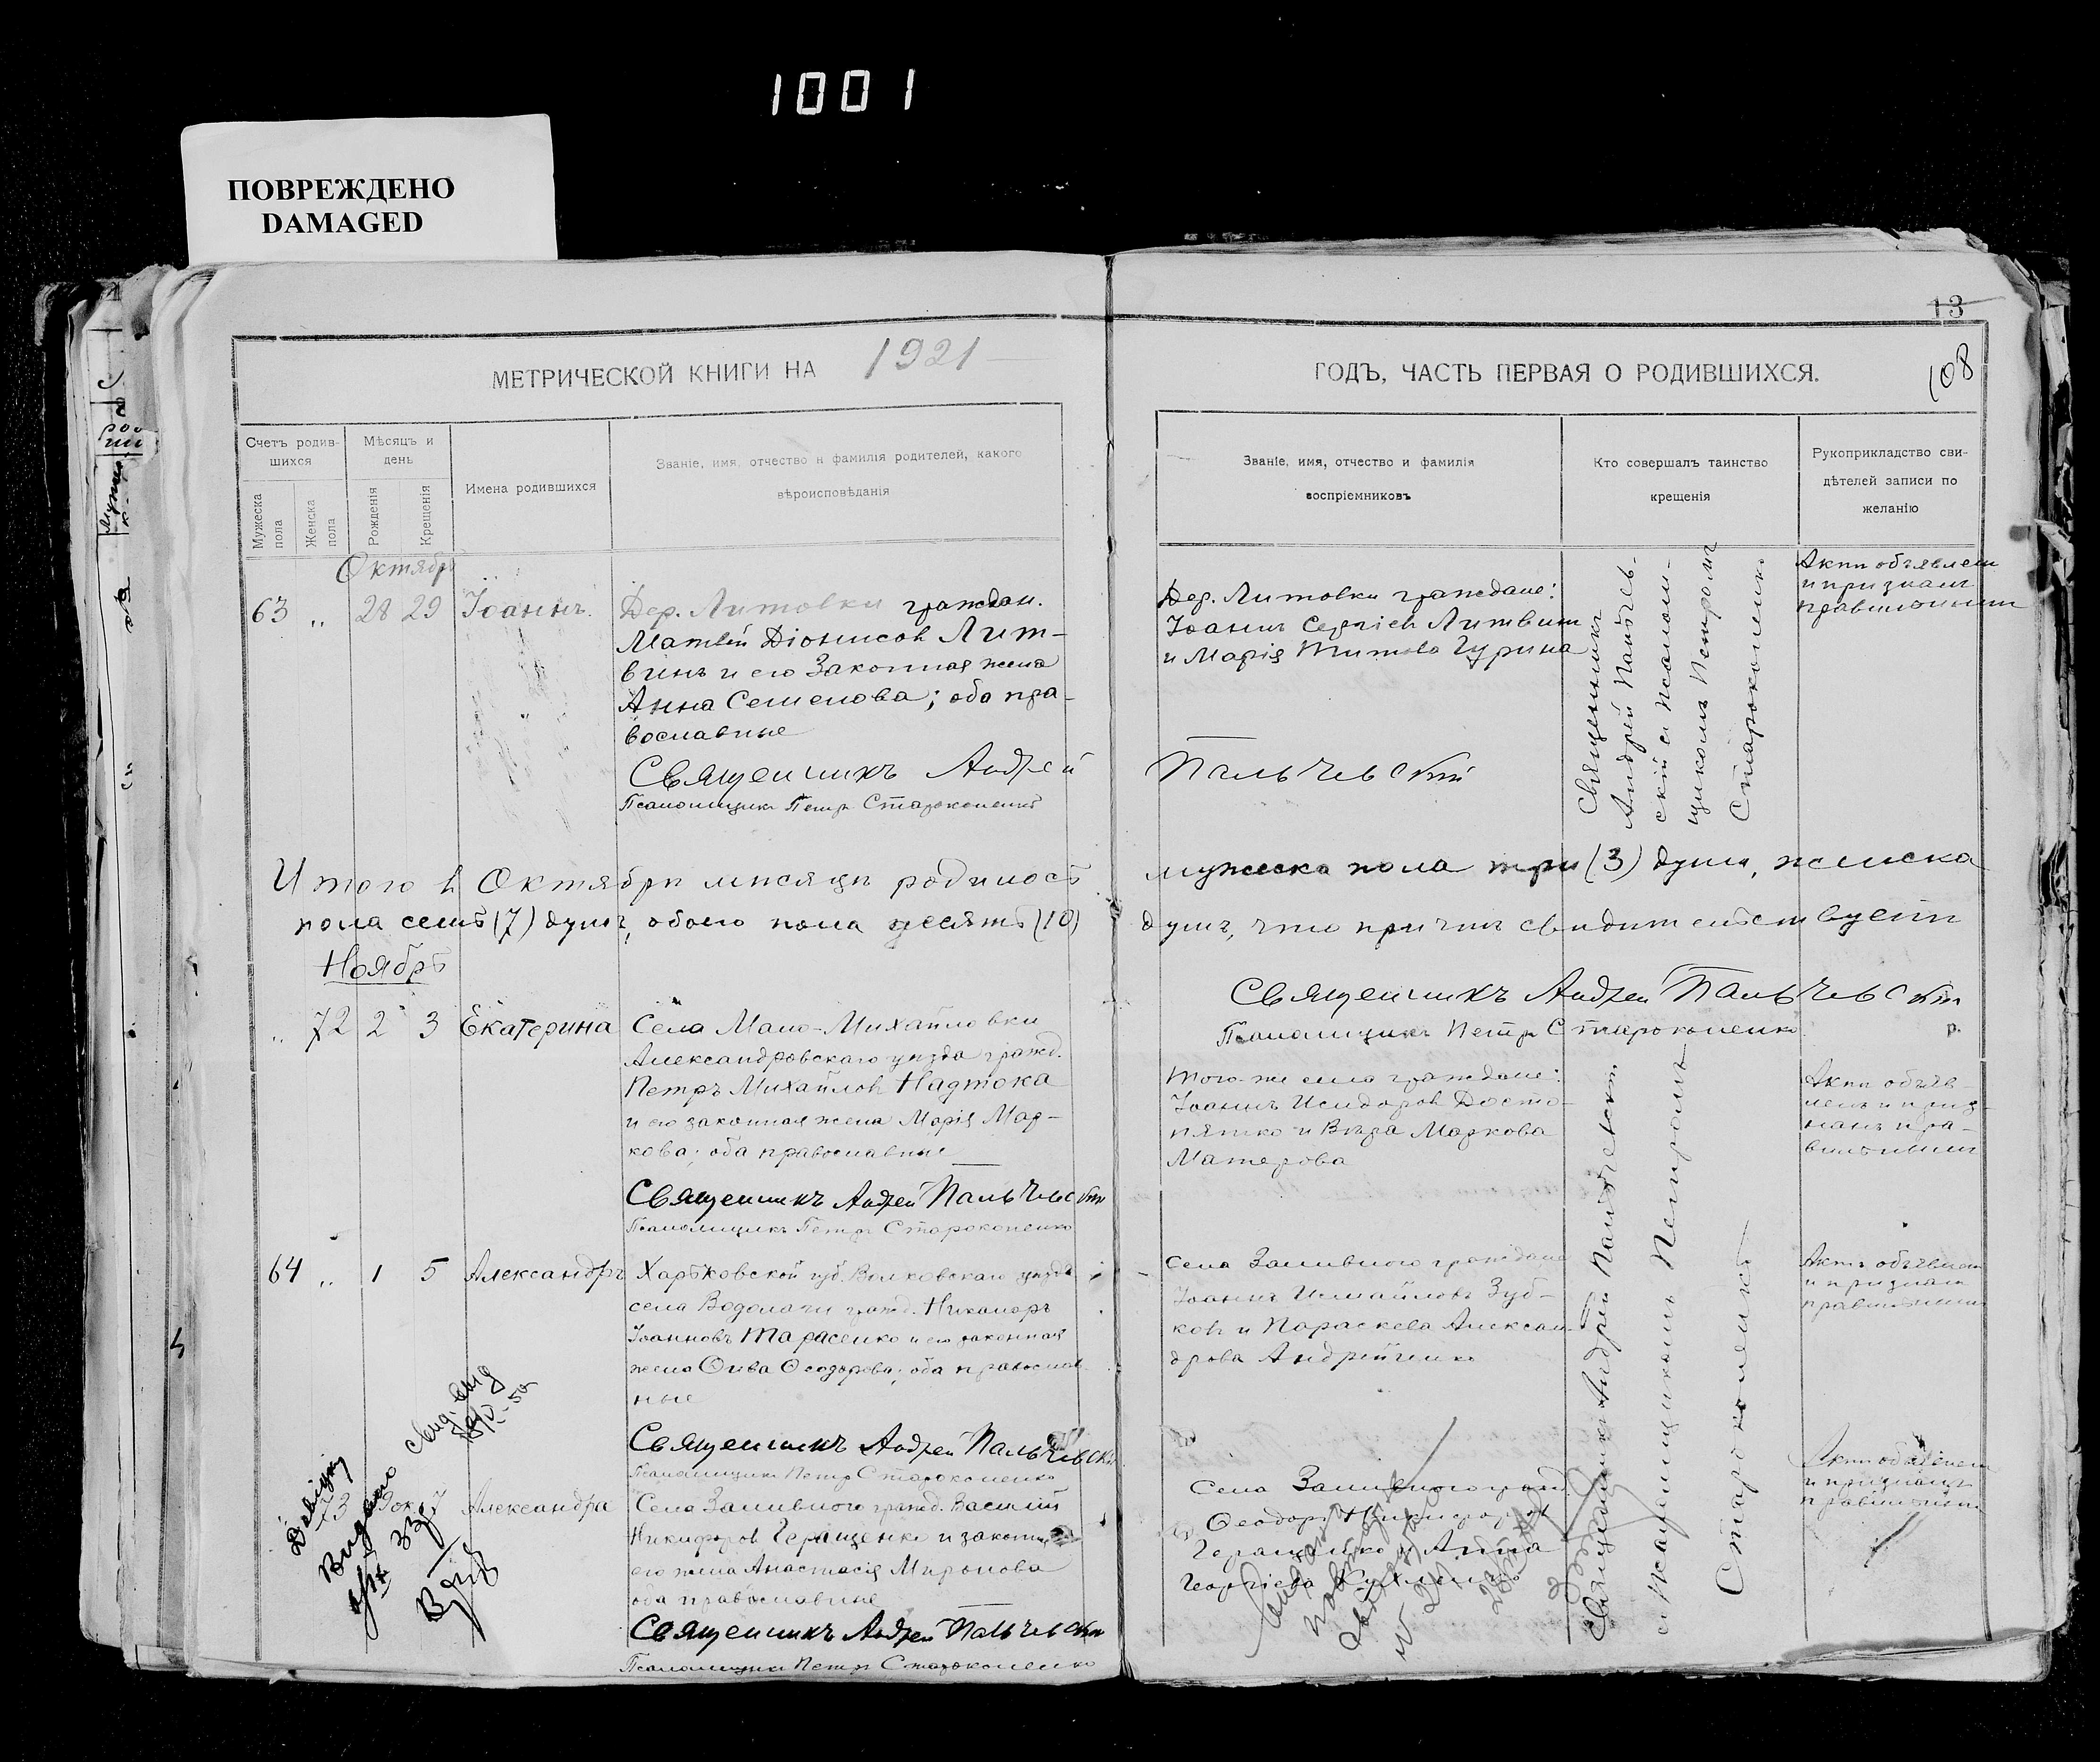 1001
ПОВРЕЖДЕНО
DAMAGED
13
108
МЕТРИЧЕСКОЙ КНИГИ НА 1921
ГОДЪ, ЧАСТЬ ПЕРВАЯ О РОДИВШИХСЯ.
Счетъ родив-
шихся
Мужеска пола
Женска пола
Мѣсяцъ и
день
Рожденія
Крещенія
Имена родившихся
Званіе, имя, отчество и фамилія родителей, какого
вѣроисповѣданія
Званіе, имя, отчество и фамилія
воспріемниковъ
Кто совершалъ таинство
крещенія
Рукоприкладство сви-
дѣтелей записи по
желанію
Октябрь
63 " 28 29 Іоаннъ.
Дер. Литовки граждан.
Матвѣй Діонисов Лит-
винъ и его Законная жена
Анна Семенова; оба пра-
вославные
Священникъ Андрей
Псаломщикъ Петръ Староконенко
Дер. Литовки граждане:
Іоаннъ Сергіев Литвин
и Марія Титова Гурина
Пальчевскій
Священникъ
Андрей Пальчев-
скій с псалом-
щикомъ Петромъ
Староконенко
Актъ объявлен
и признанъ
правильнымъ
Итого в Октябрѣ мѣсяцѣ родилось
мужеска пола три (3) души, женска
пола семь (7) душъ, обоего пола десять (10)
душъ, что причтъ свидѣтельствуетъ
Священникъ Андрей Пальчевскій
Псаломщикъ Петръ Староконенко
Ноябрь
" 72 2 3 Екатерина
Села Мало-Михайловки
Александровскаго уѣзда гражд.
Петръ Михайлов Надтока
и его законная жена Марія Мар-
кова; оба православные
Священникъ Андрей Пальчевскій
Псаломщикъ Петръ Староконенко
Того-же села граждане:
Іоаннъ Исидоров Досто-
пятко и Вѣра Маркова
Матерова
Актъ объяв-
ленъ и приз-
нанъ пра-
вильнымъ
64 " 1 5 Александръ
Харьковской губ. Волковскаго уѣзда
села Водолаги гражд. Никаноръ
Іоанновъ Тарасенко и его законная
жена Ѳеодорова; оба православ
ные
Священникъ Андрей Пальчевскій
Псаломщикъ Петръ Староконенко
Села Заливного граждане
Іоаннъ Зуб-
ков и Параскева Алексан-
дрова Андрейченко
Актъ объявлен
и признан
правильнымъ
73 7 Александра
Села Заливного гражд. Василій
Никифоров Геращенко и законная
его жена Анастасія Миронова
оба православные
Священникъ Андрей Пальчевскій
Псаломщикъ Петръ Староконенко
Села Заливного гражд.
Ѳеодоръ Никифоров
Геращенко и Анна
Георгіева
Священникъ Андрей Пальчевскій
с псаломщикомъ Петромъ
Староконенко
Актъ объявлен
и признанъ
правильнымъ
Видано